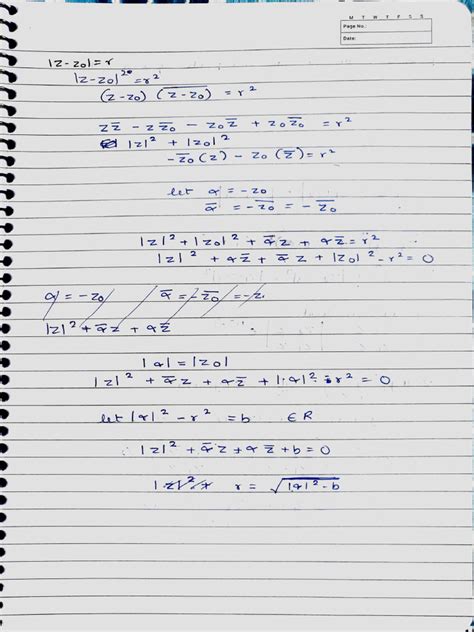 M T W T F S S
Page No.:
Date:
|z-z₀|=r
|z-z₀|²=r²
(z-z₀) (z̄-z̄₀) = r²
zz̄ - zz̄₀ - z₀z̄ + z₀z̄₀ = r²
|z|² + |z₀|²
-z̄₀(z) - z₀(z̄)=r²
let α = -z₀
ᾱ = -z̄₀ = -z̄₀
|z|²+|z₀|² + ᾱz + αz̄=r²
|z|² + αz̄ + ᾱz + |z₀|²-r²=0
α = -z₀ ᾱ = -z̄₀ = -z.
|z|²+ᾱz + αz̄
|α|=|z₀|
|z|² + ᾱz + αz̄ + |α|²-r²=0
let |α|²-r² =b ∈R
|z|² +ᾱz+αz̄+b=0
|z|²+ r = √|α|²-b